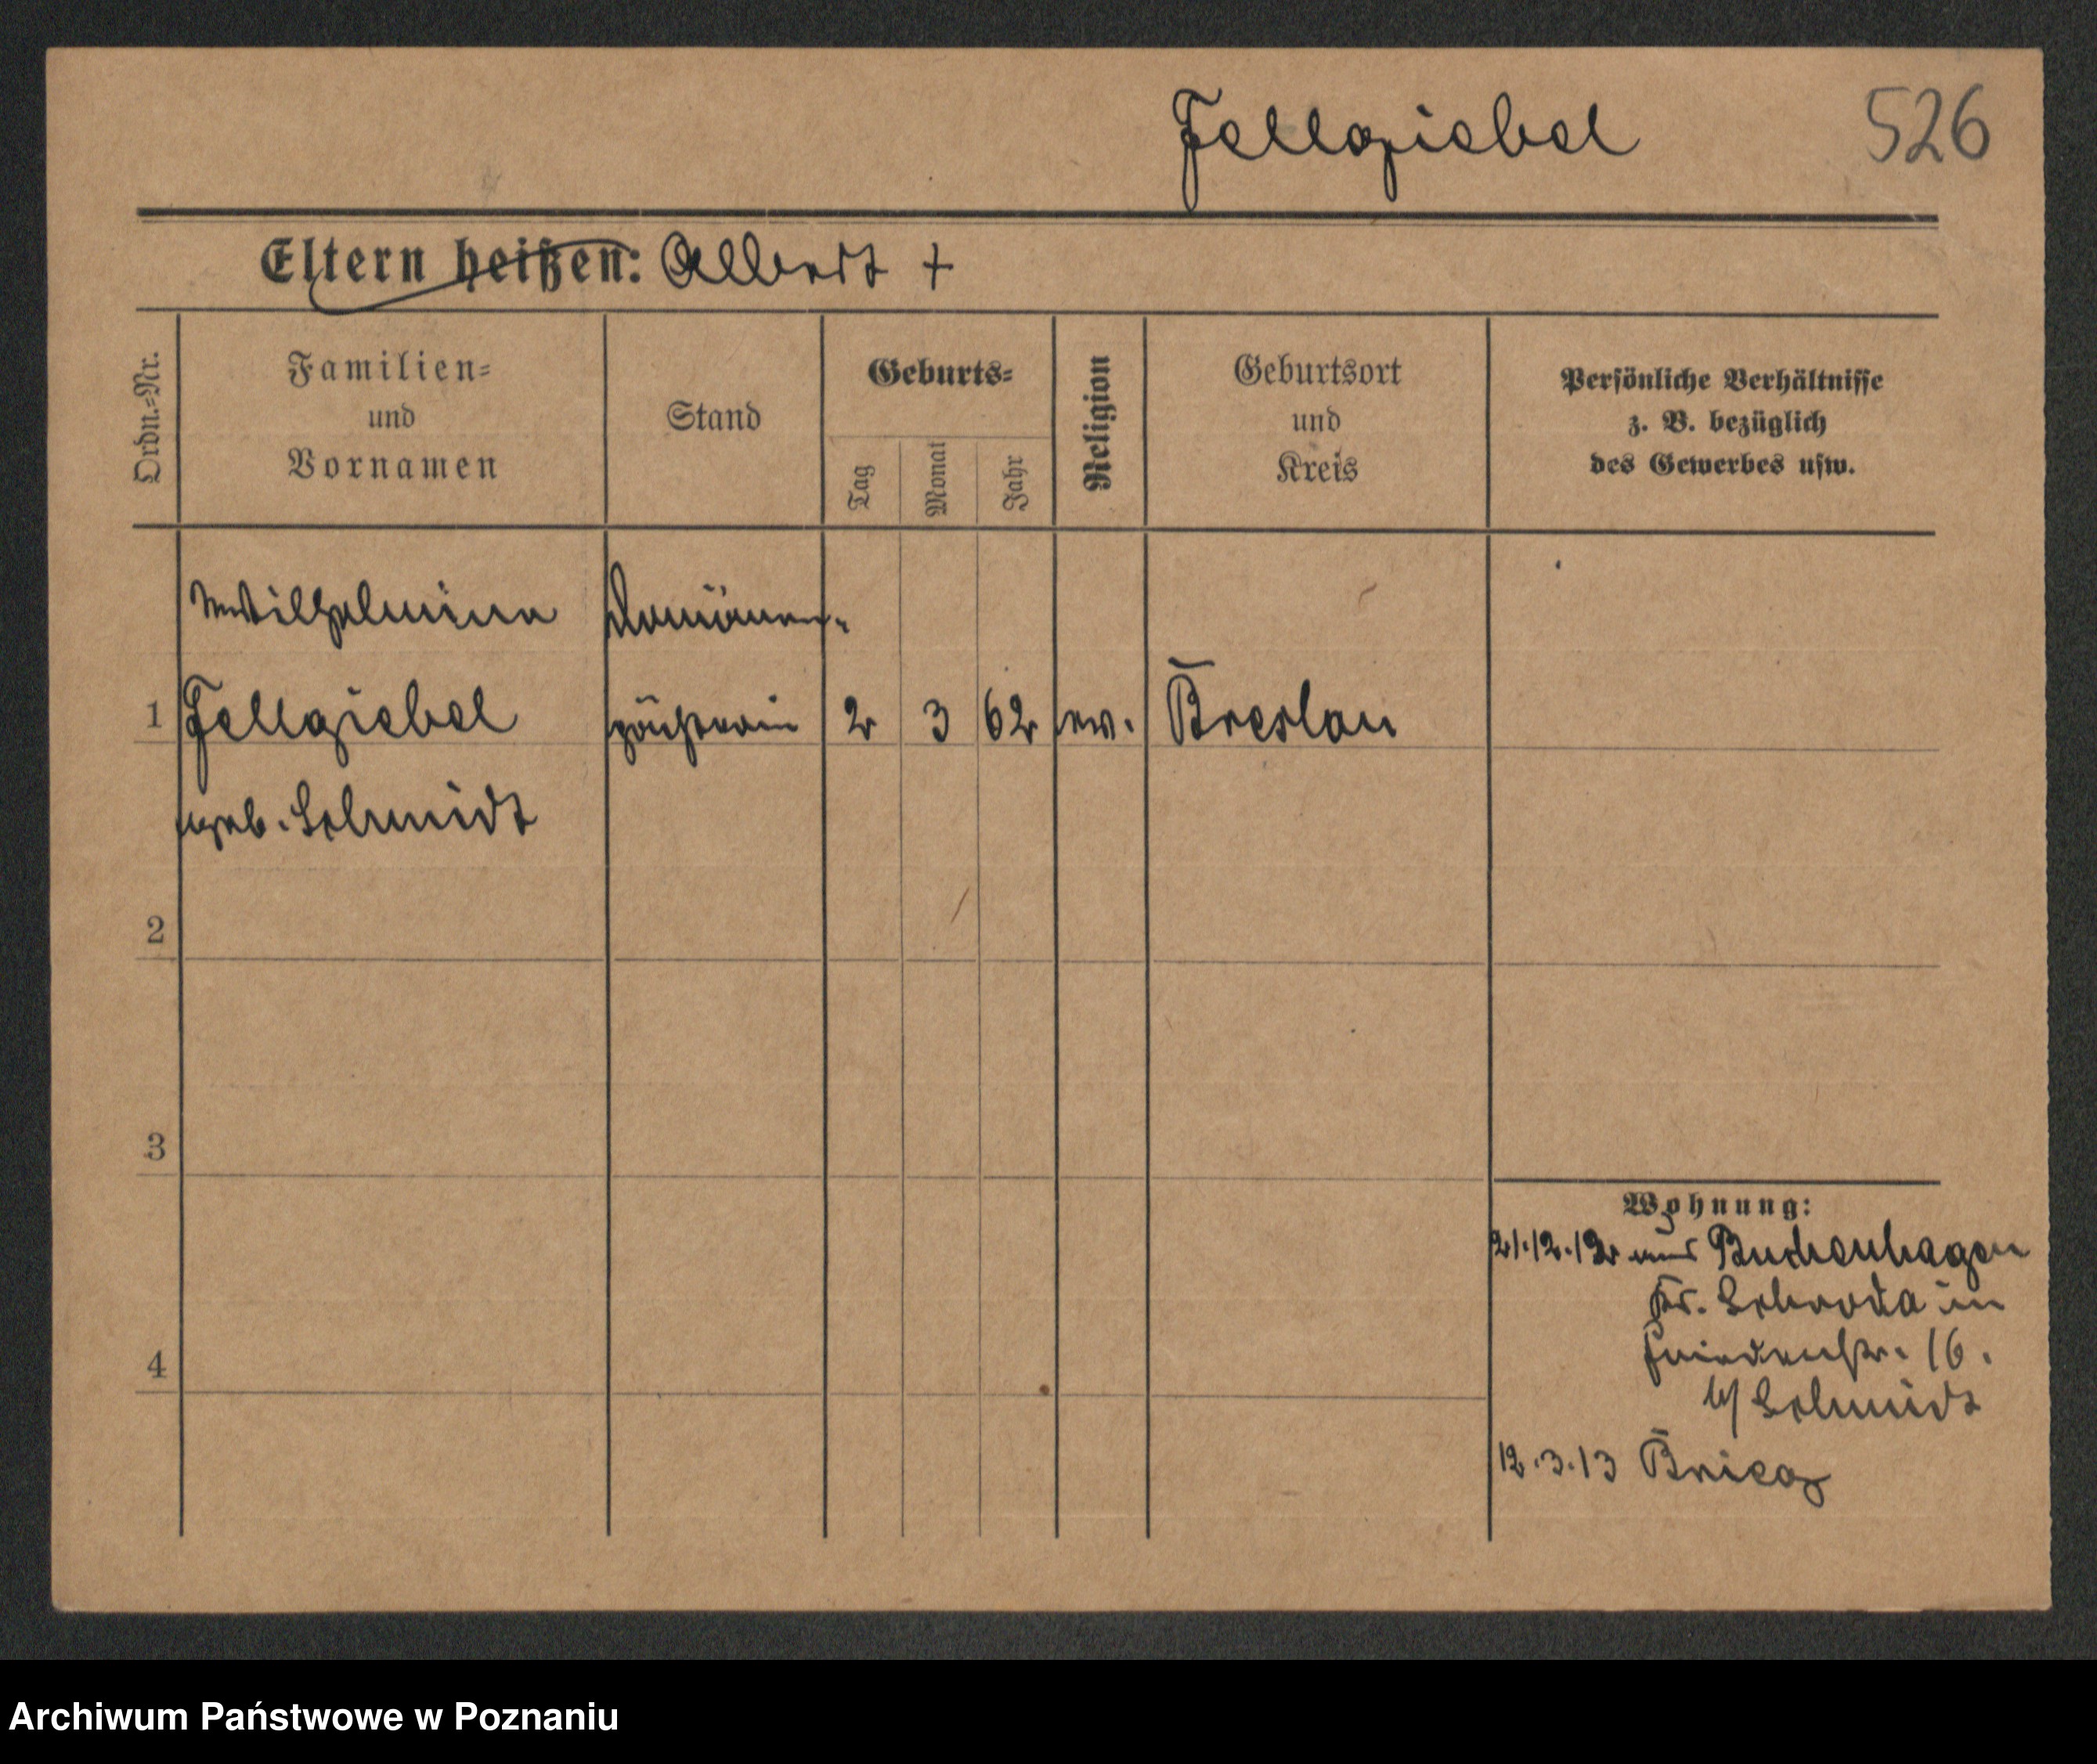 Fellgiebel 526
Eltern heißen: Albert +
Ordn.-Nr.
Familien-
und
Vornamen
Stand
Geburts-
Tag
Monat
Jahr
Religion
Geburtsort
und
Kreis
Persönliche Verhältnisse
z. B. bezüglich
des Gewerbes usw.
Wilhelmine Domänen-
1 Fellgiebel pächterin 2 3 62 ev. Breslau
geb. Schmidt
2
3
4
Wohnung:
21.12.12 aus Buchenhagen
Kr. Schroda in
Friedenstr. 16.
b/ Schmidt
12.3.13 Brieg
Archiwum Państwowe w Poznaniu